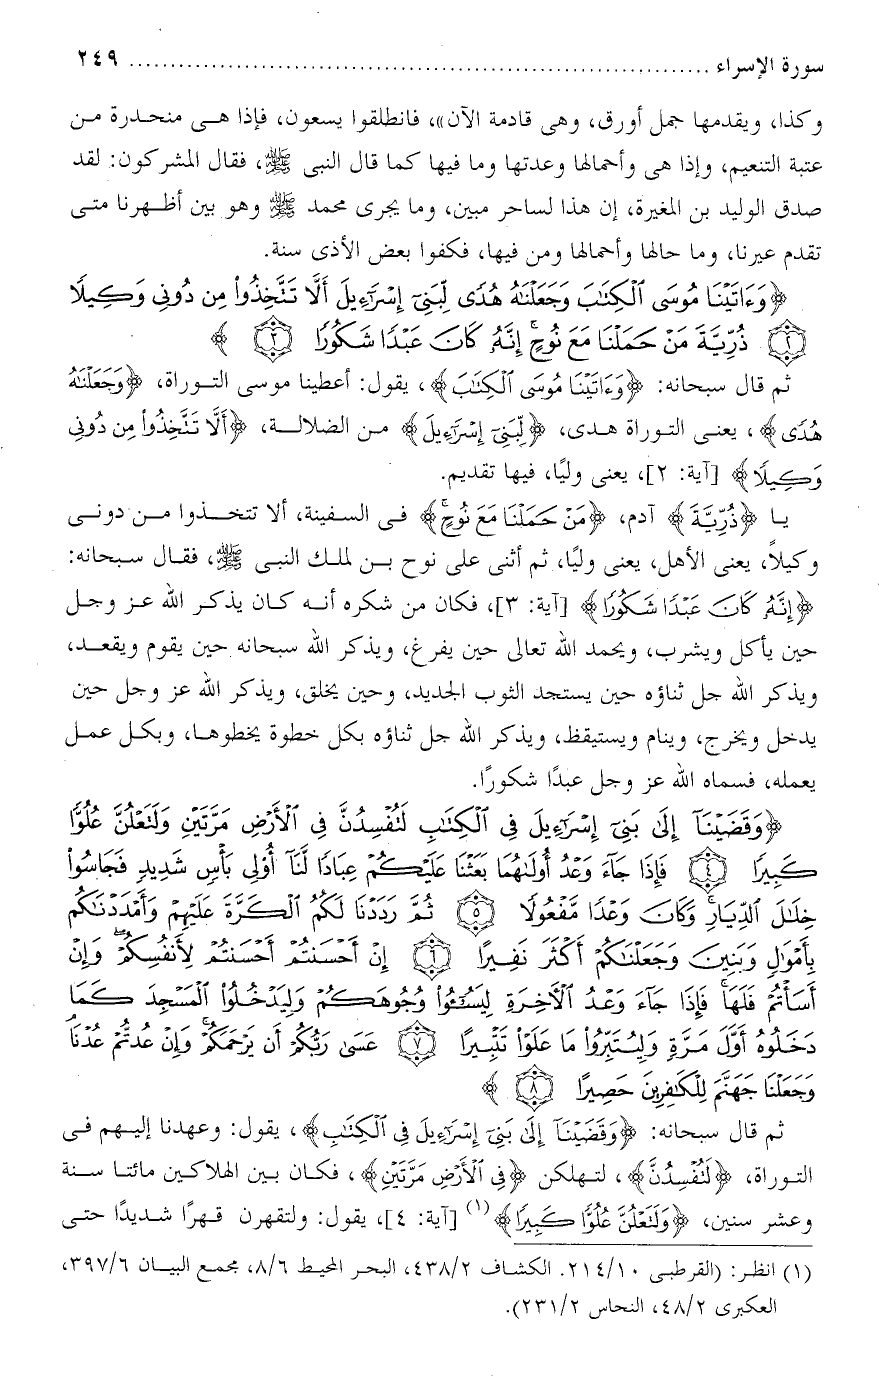 سورة الإسراء ........................................................................ ٢٤٩
وكذا، ويقدمها جمل أورق، وهى قادمة الآن»، فانطلقوا يسعون، فإذا هــى منحـدرة مـن
عتبة التنعيم، وإذا هى وأحمالها وعدتها وما فيها كما قال النبى ﷺ، فقال المشركون: لقد
صدق الوليد بن المغيرة، إن هذا لساحر مبين، وما يجرى محمد ﷺ وهو بين أظـهرنا متـى
تقدم عيرنا، وما حالها وأحمالها ومن فيها، فكفوا بعض الأذى سنة.
﴿وَءَاتَيْنَا مُوسَى ٱلْكِتَٰبَ وَجَعَلْنَٰهُ هُدًى لِّبَنِىٓ إِسْرَٰٓءِيلَ أَلَّا تَتَّخِذُوا۟ مِن دُونِى وَكِيلًا
٢ ذُرِّيَّةَ مَنْ حَمَلْنَا مَعَ نُوحٍ ۚ إِنَّهُۥ كَانَ عَبْدًا شَكُورًا ٣ ﴾
ثم قال سبحانه: ﴿وَءَاتَيْنَا مُوسَى ٱلْكِتَٰبَ﴾، يقول: أعطينا موسى التـوراة، ﴿وَجَعَلْنَٰهُ
هُدًى﴾، يعنـى التـوراة هـدى، ﴿لِّبَنِىٓ إِسْرَٰٓءِيلَ﴾ مـن الضلالـة، ﴿أَلَّا تَتَّخِذُوا۟ مِن دُونِى
وَكِيلًا﴾ [آية: ٢]، يعنى وليًا، فيها تقديم.
يـا ﴿ذُرِّيَّةَ﴾ آدم، ﴿مَنْ حَمَلْنَا مَعَ نُوحٍ ۚ﴾ فـى السـفينة، ألا تتخـذوا مـن دونـى
وكيلاً، يعنى الأهل، يعنى وليًا، ثم أثنى على نوح بـن لمـك النبـى ﷺ، فقـال سـبحانه:
﴿إِنَّهُۥ كَانَ عَبْدًا شَكُورًا﴾ [آية: ٣]، فكان من شكره أنـه كـان يذكـر الله عـز وجـل
حين يأكل ويشرب، ويحمد الله تعالى حين يفرغ، ويذكر الله سبحانه حين يقوم ويقعـد،
ويذكر الله جل ثناؤه حين يستجد الثوب الجديد، وحين يخلق، ويذكر الله عز وجل حين
يدخل ويخرج، وينام ويستيقظ، ويذكر الله جل ثناؤه بكل خطوة يخطوهـا، وبكـل عمـل
يعمله، فسماه الله عز وجل عبدًا شكورًا.
﴿وَقَضَيْنَآ إِلَىٰ بَنِىٓ إِسْرَٰٓءِيلَ فِى ٱلْكِتَٰبِ لَتُفْسِدُنَّ فِى ٱلْأَرْضِ مَرَّتَيْنِ وَلَتَعْلُنَّ عُلُوًّا
كَبِيرًا ٤ فَإِذَا جَآءَ وَعْدُ أُولَىٰهُمَا بَعَثْنَا عَلَيْكُمْ عِبَادًا لَّنَآ أُو۟لِى بَأْسٍ شَدِيدٍ فَجَاسُوا۟
خِلَٰلَ ٱلدِّيَارِ ۚ وَكَانَ وَعْدًا مَّفْعُولًا ٥ ثُمَّ رَدَدْنَا لَكُمُ ٱلْكَرَّةَ عَلَيْهِمْ وَأَمْدَدْنَٰكُم
بِأَمْوَٰلٍ وَبَنِينَ وَجَعَلْنَٰكُمْ أَكْثَرَ نَفِيرًا ٦ إِنْ أَحْسَنتُمْ أَحْسَنتُمْ لِأَنفُسِكُمْ ۖ وَإِنْ
أَسَأْتُمْ فَلَهَا ۚ فَإِذَا جَآءَ وَعْدُ ٱلْءَاخِرَةِ لِيَسُۥٓـُٔوا۟ وُجُوهَكُمْ وَلِيَدْخُلُوا۟ ٱلْمَسْجِدَ كَمَا
دَخَلُوهُ أَوَّلَ مَرَّةٍ وَلِيُتَبِّرُوا۟ مَا عَلَوْا۟ تَتْبِيرًا ٧ عَسَىٰ رَبُّكُمْ أَن يَرْحَمَكُمْ ۚ وَإِنْ عُدتُّمْ عُدْنَا ۘ
وَجَعَلْنَا جَهَنَّمَ لِلْكَٰفِرِينَ حَصِيرًا ٨ ﴾
ثم قال سبحانه: ﴿وَقَضَيْنَآ إِلَىٰ بَنِىٓ إِسْرَٰٓءِيلَ فِى ٱلْكِتَٰبِ﴾، يقول: وعهدنا إليـهم فـى
التـوراة، ﴿لَتُفْسِدُنَّ﴾، لتـهلكن ﴿فِى ٱلْأَرْضِ مَرَّتَيْنِ﴾، فكـان بـين الهلاكـين مائتـا سـنة
وعشر سنين، ﴿وَلَتَعْلُنَّ عُلُوًّا كَبِيرًا﴾(١) [آية: ٤]، يقول: ولتقهرن قـهرًا شـديدًا حتـى
(١) انظر: (القرطبى ٢١٤/١٠. الكشاف ٤٣٨/٢، البحر المحيط ٨/٦، مجمع البيـان ٣٩٧/٦،
العكبرى ٤٨/٢، النحاس ٢٣١/٢).